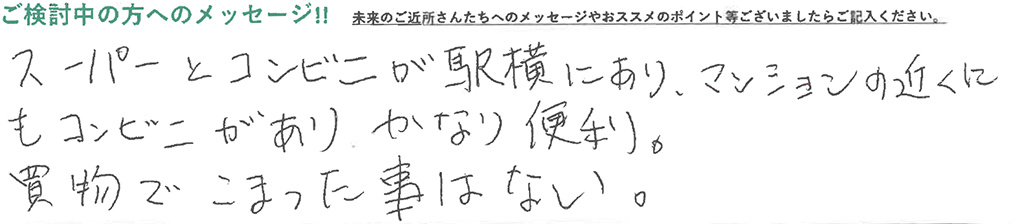 ご検討中の方へのメッセージ!! 未来のご近所さんたちへのメッセージやおススメのポイント等ございましたらご記入ください。
スーパーとコンビニが駅横にあり、マンションの近くに
もコンビニがあり かなり便利。
買物でこまった事はない。